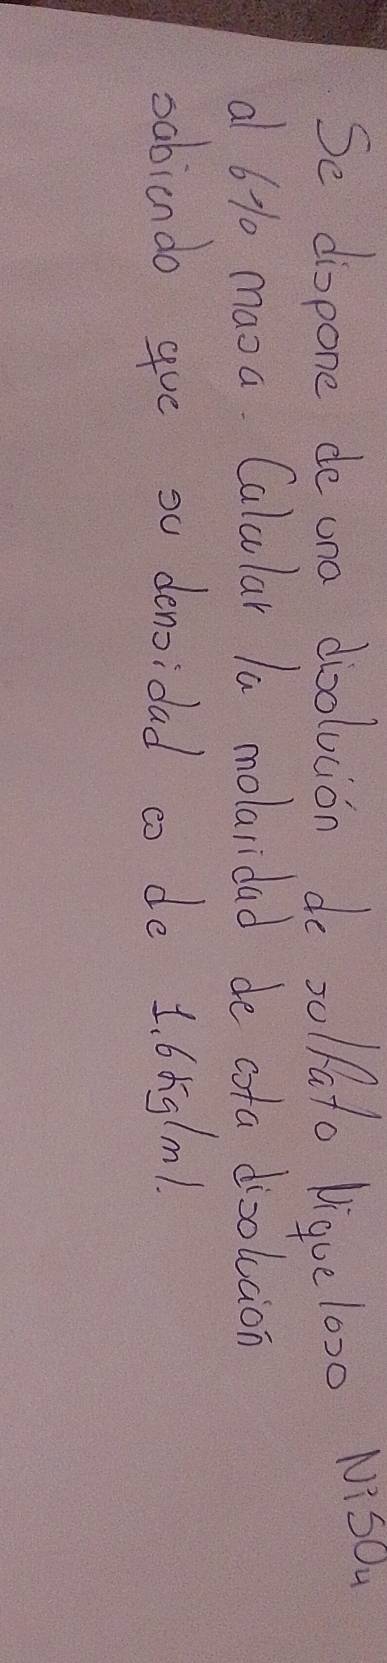 Se dispone de una disolución de sulfato Niqueloso NiSO4
al 6% masa. Calcular la molaridad de esta disolución
sabiendo que su densidad es de 1.6 Kg/ml.